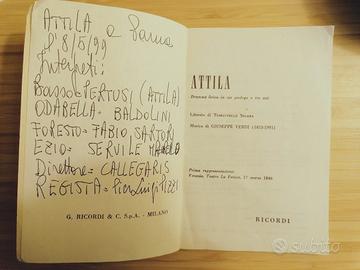 ATTILA a Parma
l'8/5/99
Interpreti:
Basso PERTUSI (ATTILA)
ODABELLA = BALDOLINI
FORESTO = FABIO SARTORI
EZIO = SERVILE
Direttore = CALLEGARIS
REGISTA = Pier Luigi PIZZI
G. RICORDI & C. S.p.A. - MILANO
ATTILA
Dramma lirico in un prologo e tre atti
Libretto di TEMISTOCLE SOLERA
Musica di GIUSEPPE VERDI (1813-1901)
Prima rappresentazione:
Venezia, Teatro La Fenice, 17 marzo 1846
RICORDI
subito